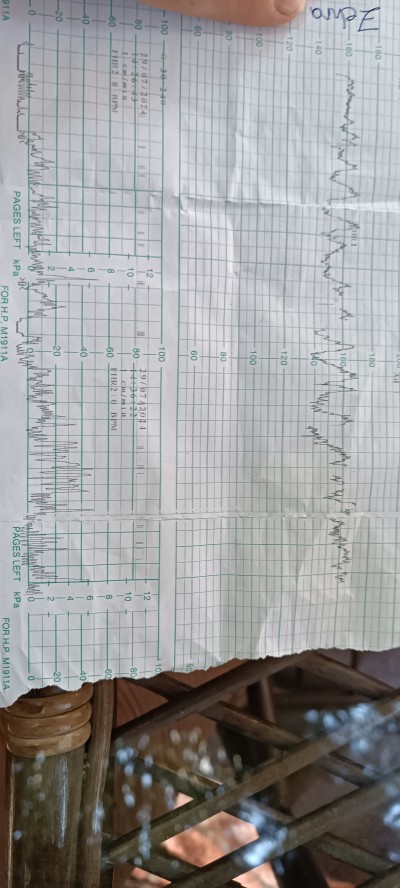 180 180
160 160
140 140
120 120
100 100
80 80
60 60
100 100
29/07/2024 29/07/2024
14:26:23 14:36:22
1 cm/min cm/min
FHR2:0 BPM FHR2:0 BPM
80 12 80 12
60 10 60 10
8 8
40 6 40 6
20 4 20 4
2 2
0 0 0 0 0
PAGES LEFT kPa PAGES LEFT kPa
911A FOR H.P. M1911A FOR H.P. M1911A